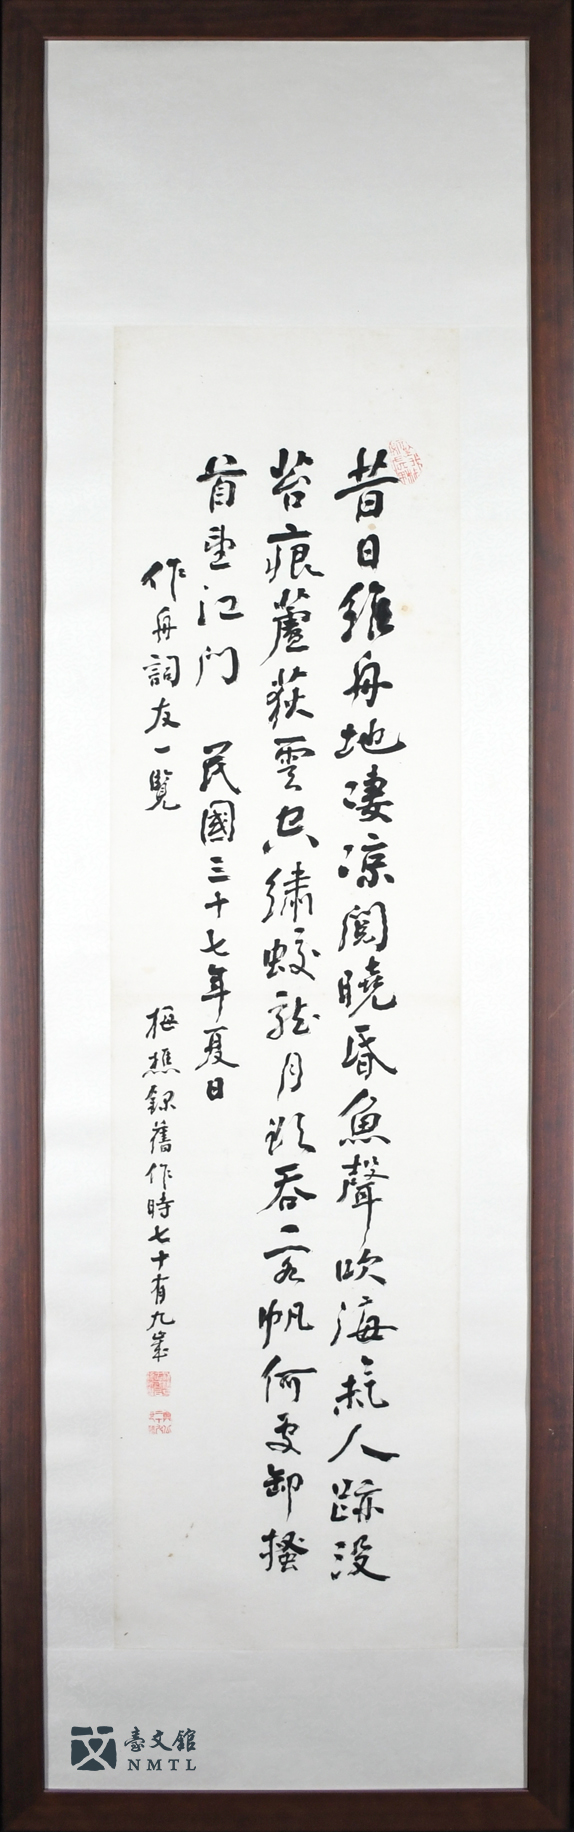 昔日維舟地淒涼閱曉昏魚聲吹海氣人跡沒
苔痕蘆荻雲空繡蛟龍月欲吞客帆何處卸搔
首望江門　民國三十七年夏日
作舟詞友一覽
梅樵錄舊作時七十有九歲
臺文館
NMTL